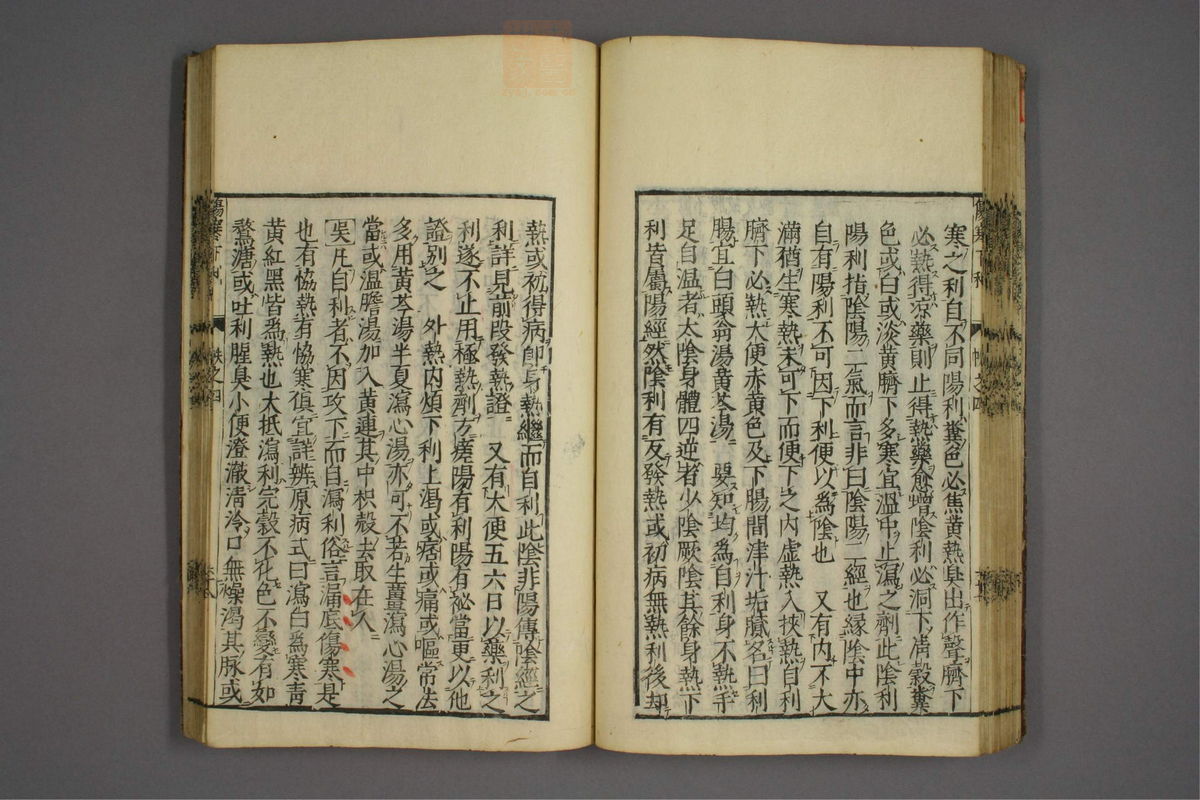 寒之利自不同陽利糞色必焦黄熱臭出作聲臍下
必熱得凉藥則止得熱藥愈增陰利必洞下清穀糞
色或白或淡黄臍下多寒宜溫中止瀉之劑此陰利
陽利指陰陽二氣而言非曰陰陽二經也縁陰中亦
自有陽利不可因下利便以爲陰也　又有内不大
滿猶生寒熱未可下而便下之内虚熱入挾熱自利
臍下必熱大便赤黄色及下腸間津汁垢膩名曰利
腸宜白頭翁湯黄芩湯　要知均爲自利身不熱手
足自温者太陰身體四逆者少陰厥陰其餘身熱下
利皆屬陽經然陰利有反發熱或初病無熱利後却
熱或初得病即身熱繼而自利此陰非陽傳陰經之
利詳見前段發熱證　又有大便五六日以藥利之
利遂不止用極熱劑方瘥陽有利陽有祕當更以他
證别之　外熱内煩下利上渴或痞或痛或嘔常法
多用黄芩湯半夏瀉心湯亦可不若生薑瀉心湯之
當或温膽湯加入黄連其中枳殼去取在人
吴凡自利者不因攻下而自瀉利俗言漏底傷寒是
也有恊熱有恊寒俱宜詳辨原病式曰瀉白爲寒青
黄紅黑皆爲熱也大抵瀉利完穀不化色不變有如
鶩溏或吐利腥臭小便澄澈清冷口無燥渴其脉或
傷寒下利
帙之四